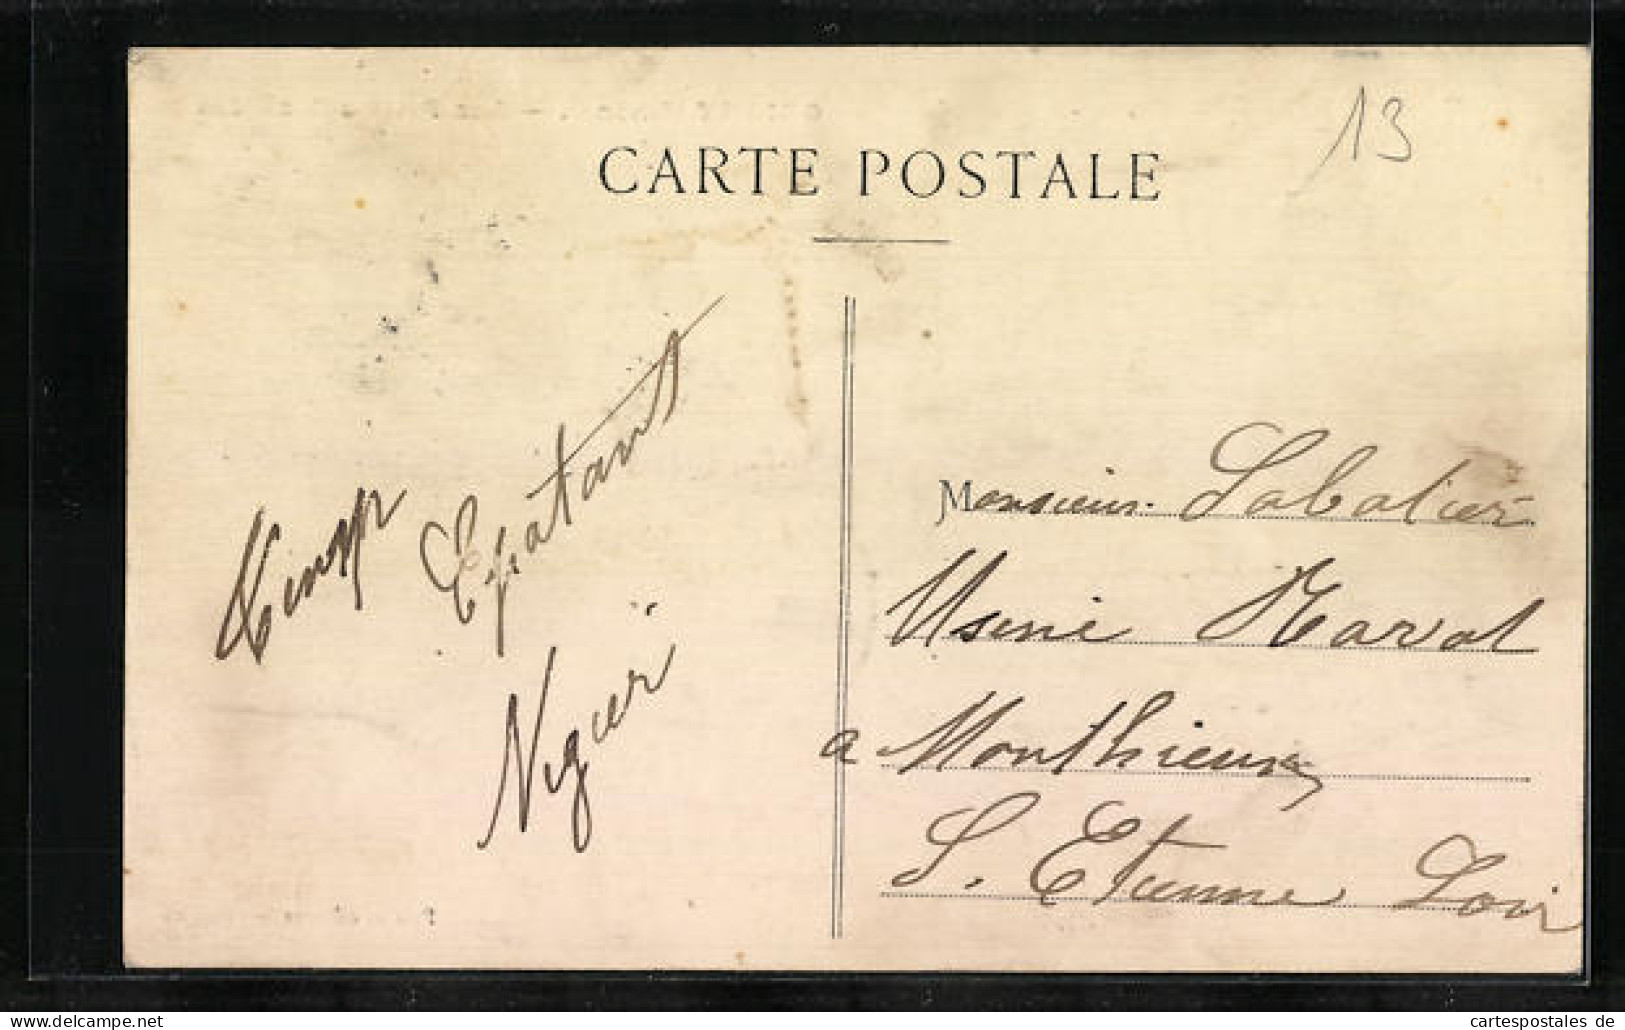 13
CARTE POSTALE
Temps
Epatant
Nigier
Monsieur Sabatier
Usine Marol
a Monthieux
S. Etienne Loir
cartespostales de